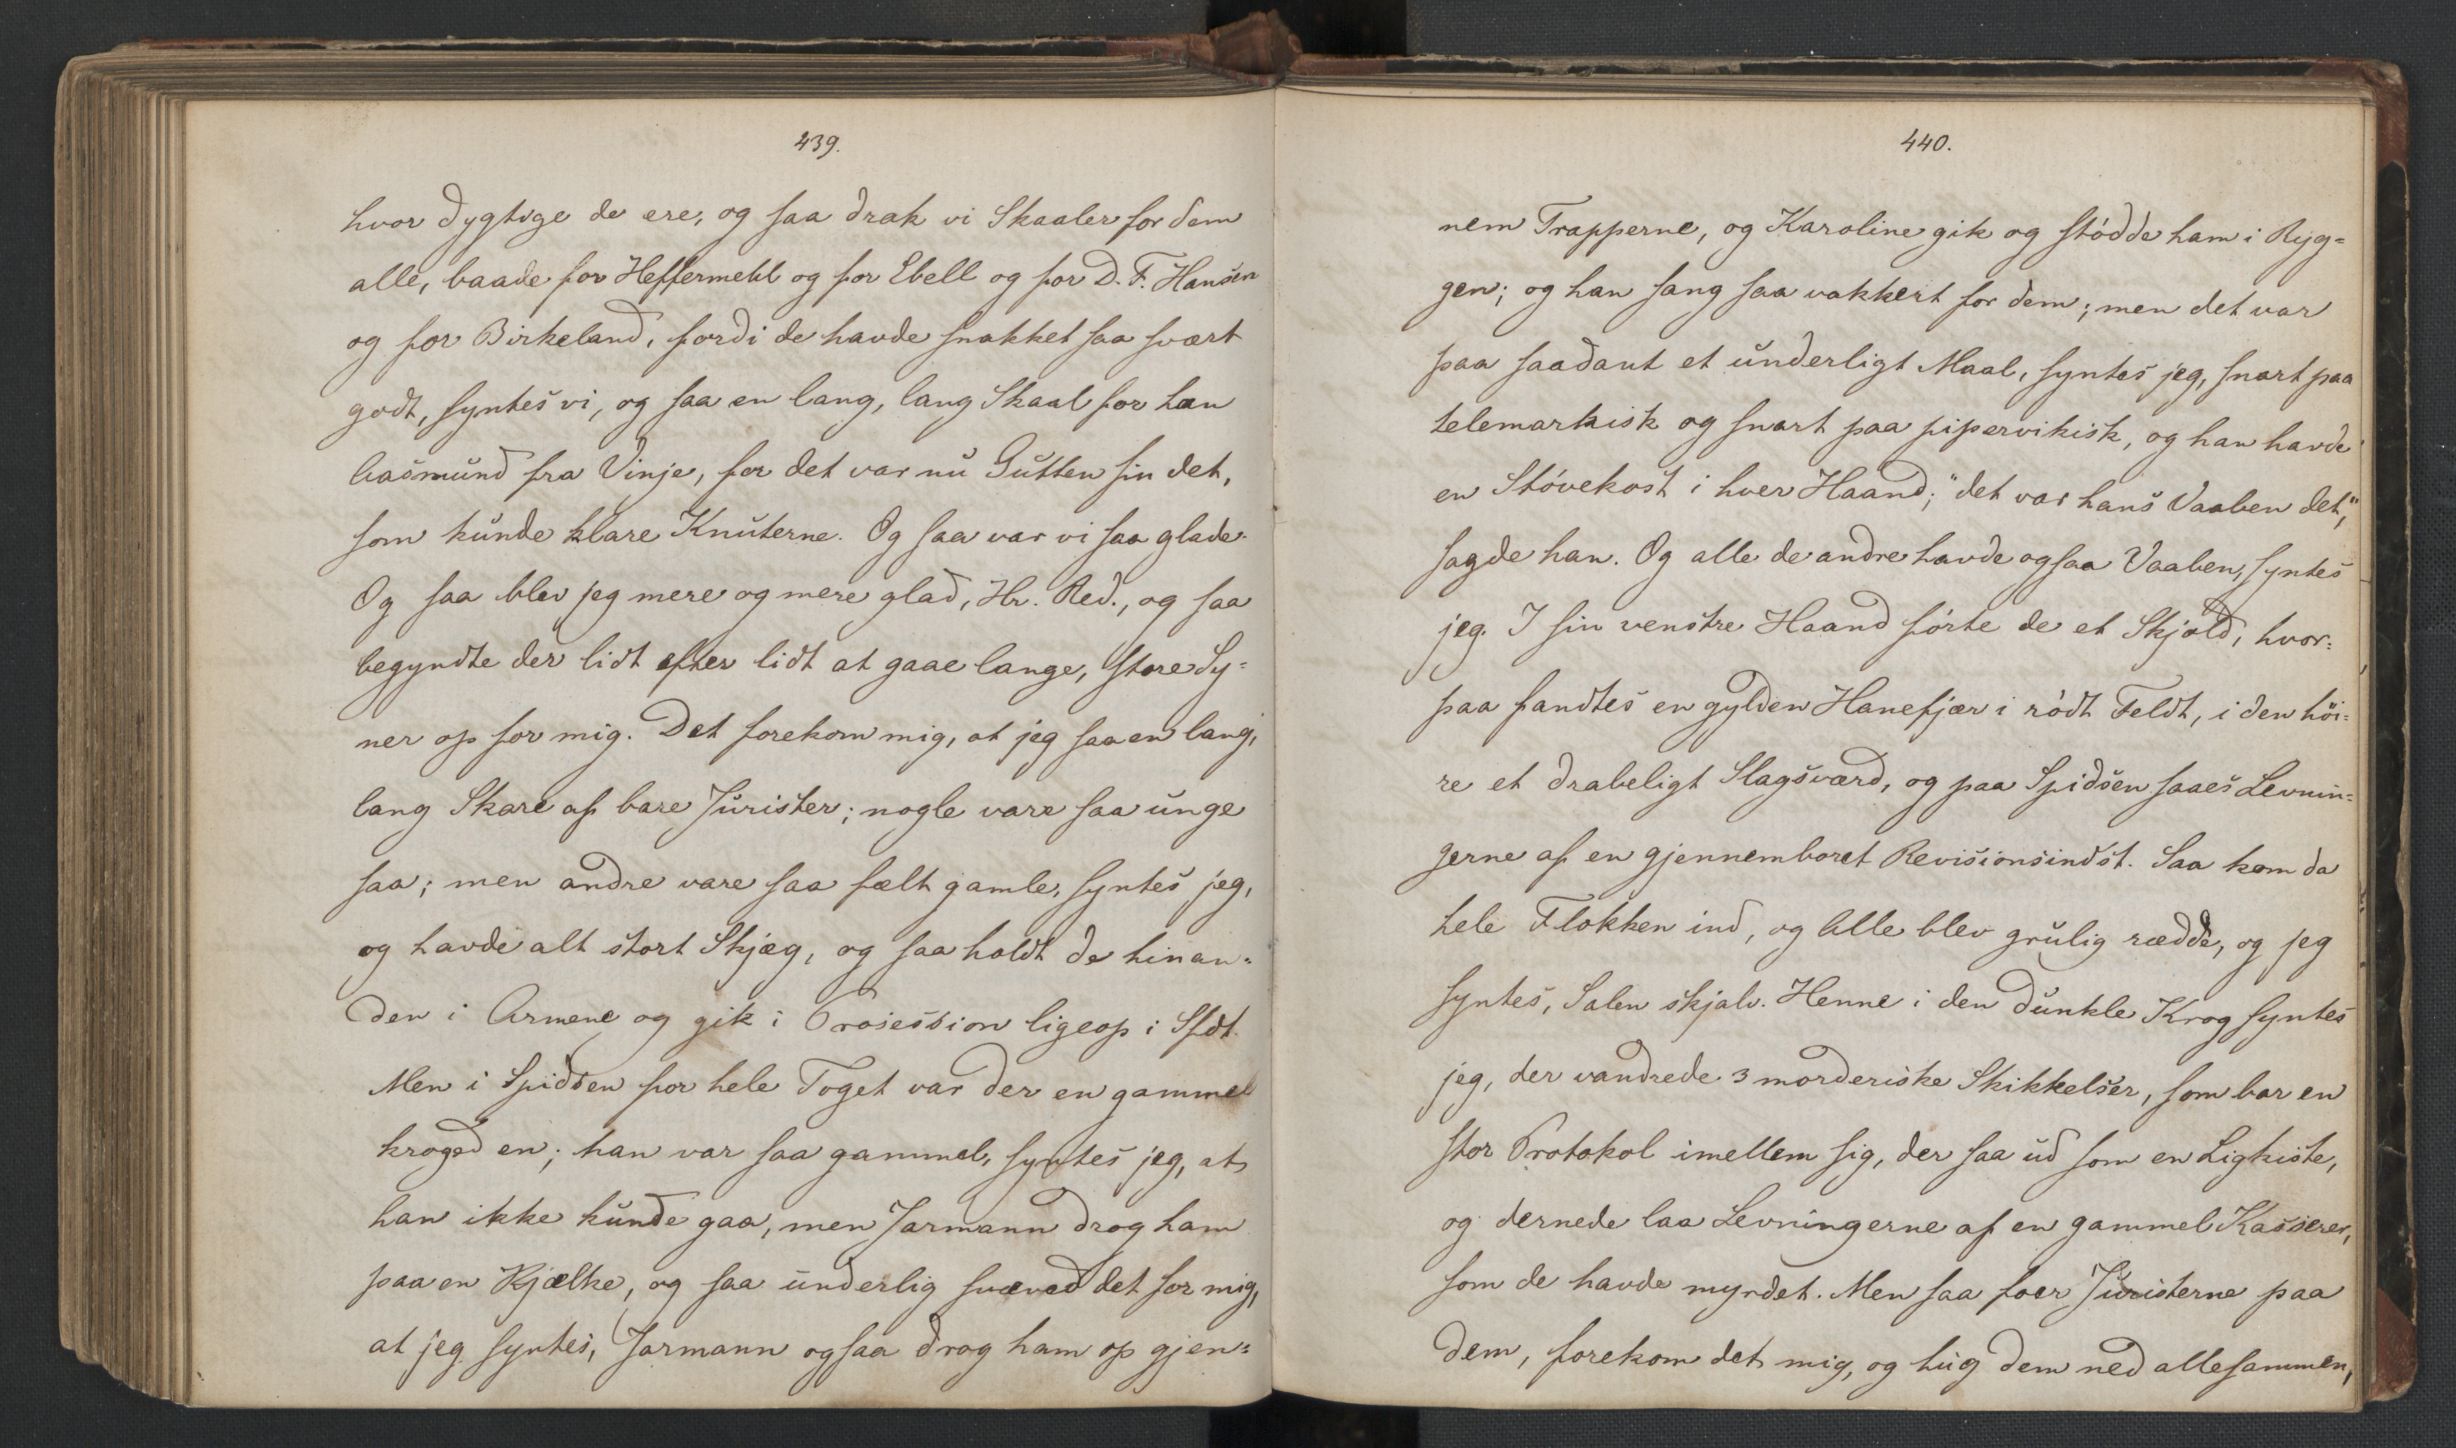 439.
hvor dygtige de ere, og saa drak vi Skaaler for dem
alle, baade for Heffermehl og for Ebell og for D. F. Hansen
og for Birkeland, fordi de havde snakket saa svært
godt, syntes vi, og saa en lang, lang Skaal for han
Aasmund fra Vinje, for det var nu Gutten sin det,
som kunde klare Knuterne. Og saa var vi saa glade.
Og saa blev jeg mere og mere glad, Hr. Red., og saa
begyndte der lidt efter lidt at gaae lange, store Sy-
ner op for mig. Det forekom mig, at jeg saa en lang,
lang Skare af bare Jurister; nogle vare saa unge
saa; men andre vare saa fælt gamle, syntes jeg,
og havde alt stort Skjæg, og saa holdt de hinan-
den i Armene og gik i Prosession ligeop i Sfdt.
Men i Spidsen for hele Toget var der en gammel
kroged en; han var saa gammel, syntes jeg, at
han ikke kunde gaa, men Jarmann drog ham
paa en Kjælke, og saa underlig svæved det for mig,
at jeg syntes, Jarmann ogsaa drog ham op gjen-
440.
nem Trapperne, og Karoline gik og stódde ham i Ryg-
gen; og han sang saa vakkert for dem; men det var
paa saadant et underligt Maal, syntes jeg, snart paa
telemarkisk og snart paa pipervikisk, og han havde
en Stóvekost i hver Haand; "det var hans Vaaben det",
sagde han. Og alle de andre havde ogsaa Vaaben, syntes
jeg. I sin venstre Haand fórte de et Skjold, hvor-
paa fandtes en gylden Hanefjær i ródt Feldt, i den höi-
re et drabeligt Slagsværd, og paa Spidsen saaes Levnin-
gerne af en gjennemboret Revisionsindst. Saa kom da
hele Flokken ind, og Alle blev grulig rædde, og jeg
syntes, Salen skjalv. Henne i den dunkle Krog syntes
jeg, der vandrede 3 morderiske Skikkelser, som bar en
stor Protokol imellem sig, der saa ud som en Ligkiste,
og dernede laa Levningerne af en gammel Kasserer,
som de havde myrdet. Men saa foer Juristerne paa
dem, forekom det mig, og hug dem ned allesammen,